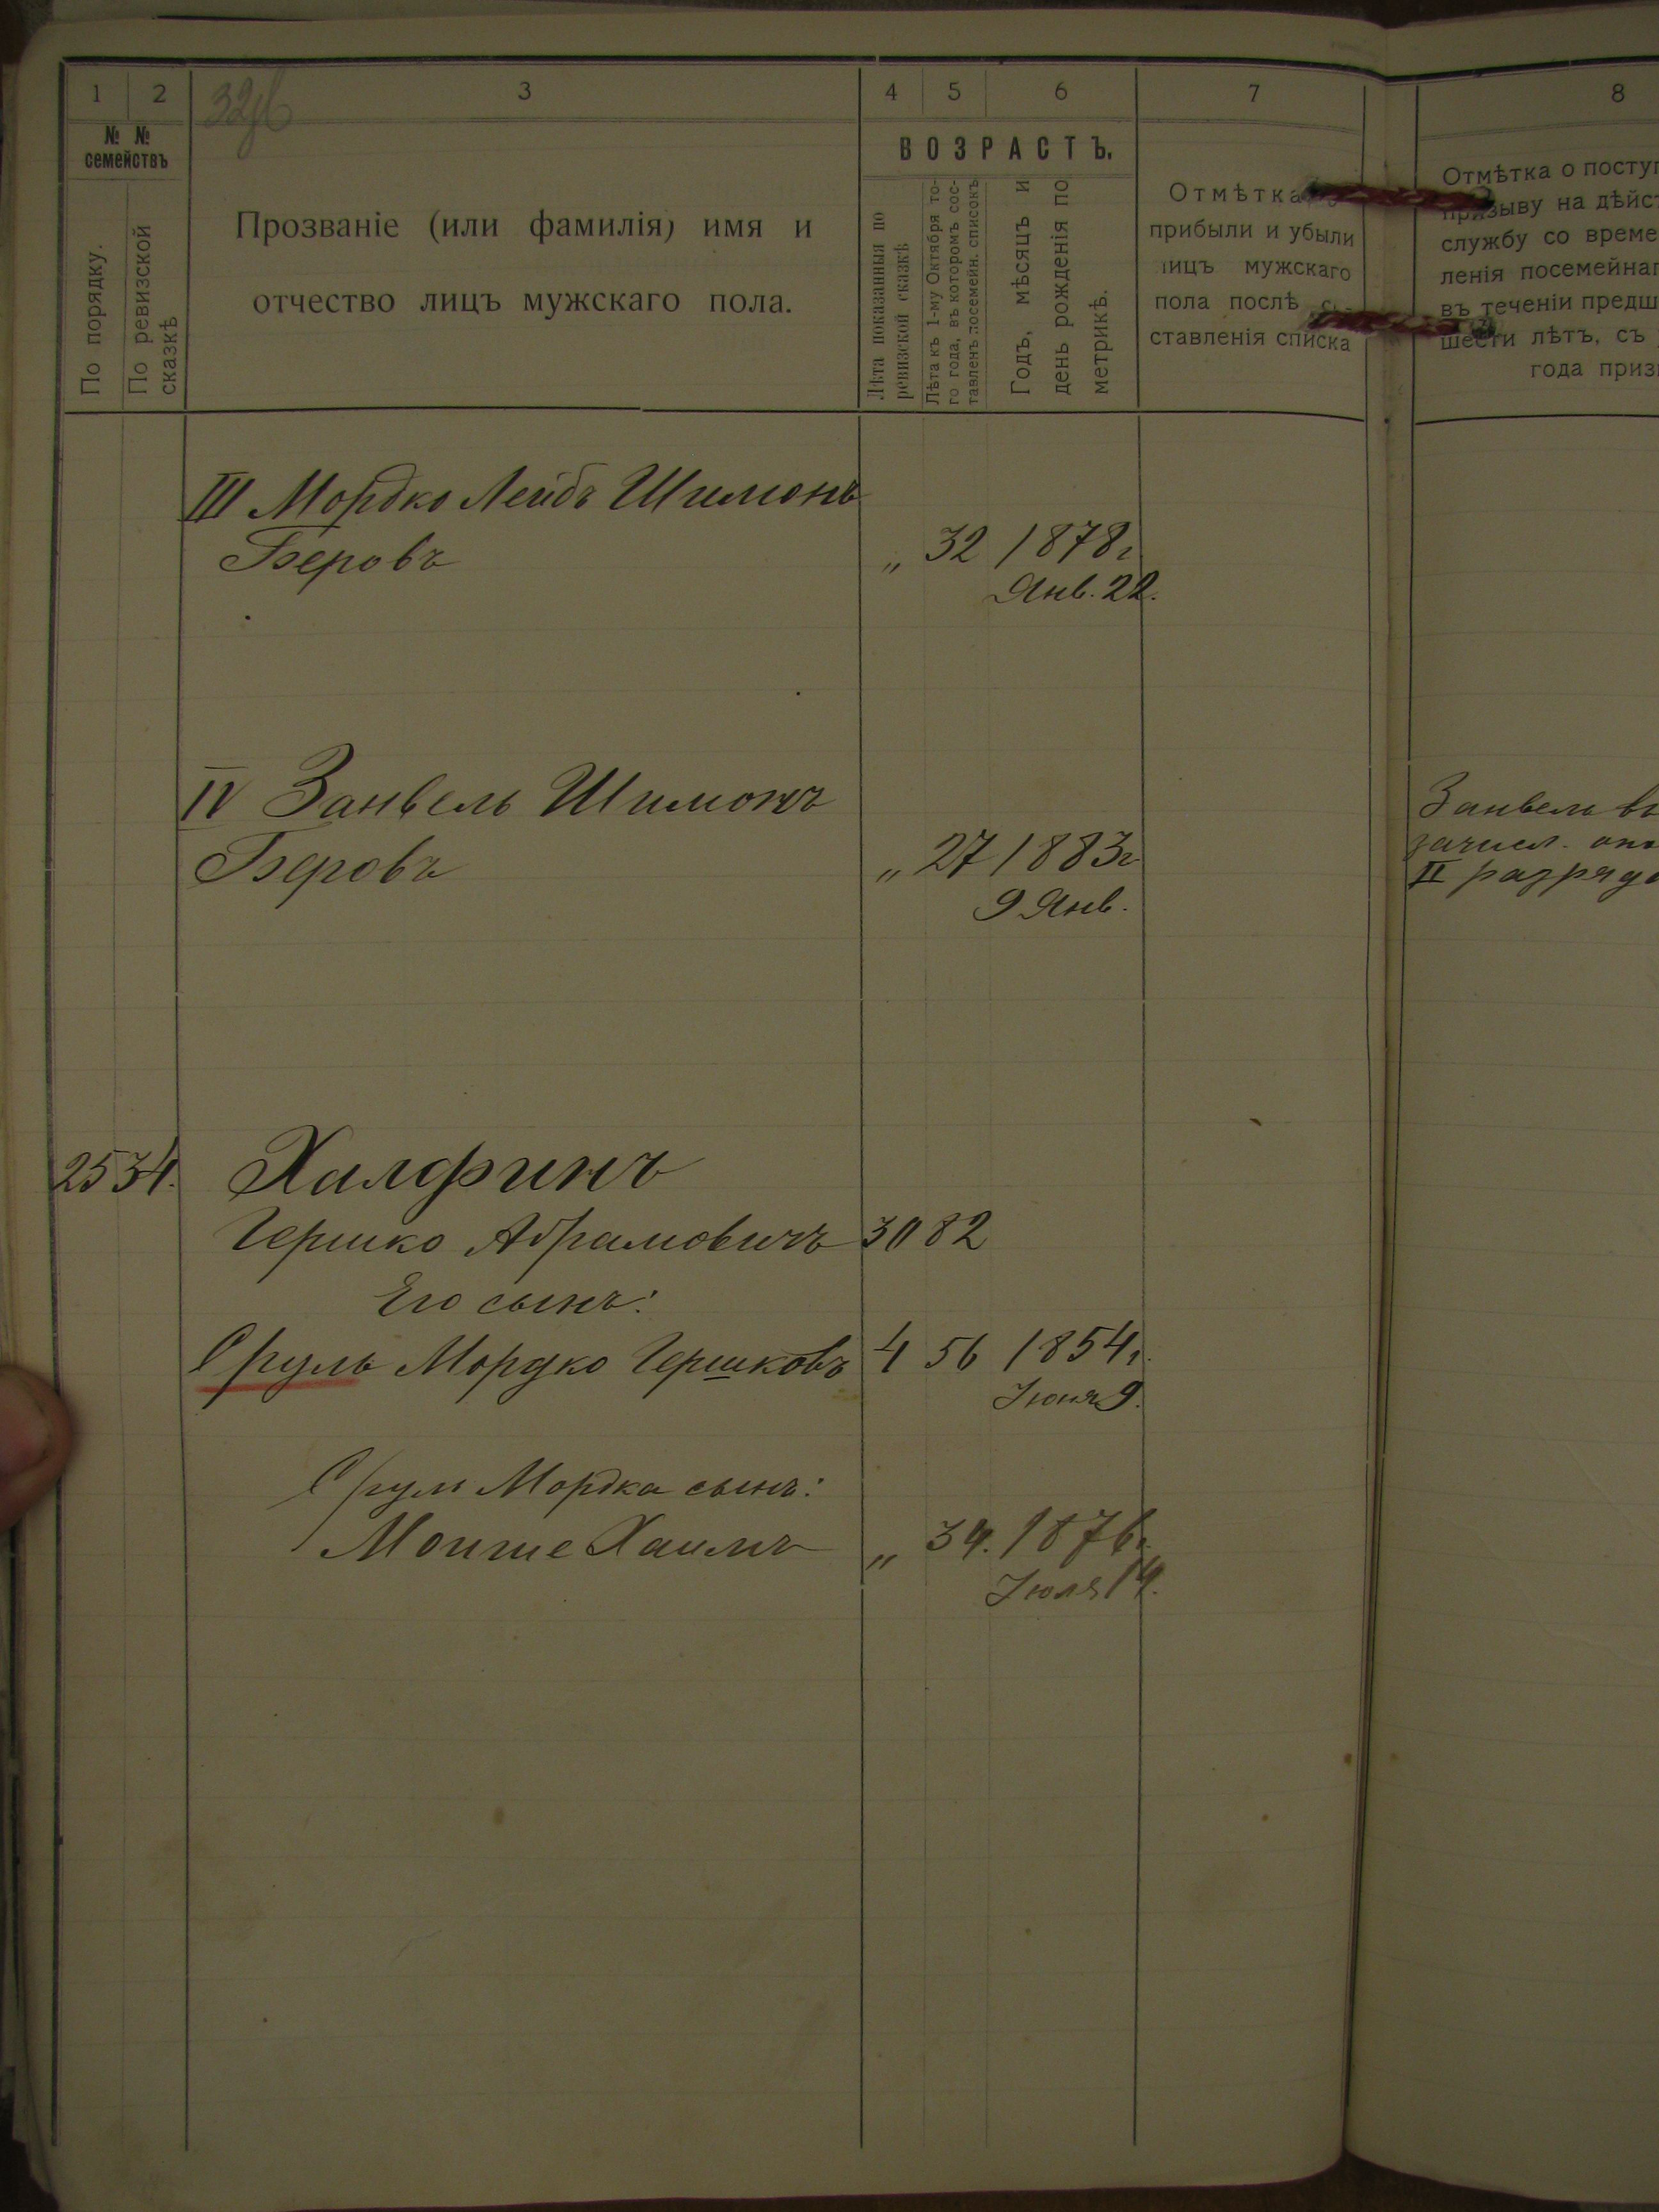 1 2 3 4 5 6 7 8
№ №
семействъ
По порядку.
По ревизской
сказкѣ
Прозваніе (или фамилія) имя и
отчество лицъ мужскаго пола.
ВОЗРАСТЪ.
Лѣта показанныя по
ревизской сказкѣ
Лѣта къ 1-му Октября то-
го года, въ которомъ сос-
тавленъ посемейн. списокъ
Годъ, мѣсяцъ и
день рожденія по
метрикѣ.
Отмѣтка
прибыли и убыли
лицъ мужскаго
пола послѣ со-
ставленія списка
Отмѣтка о посту
призыву на дѣйс
службу со време
ленія посемейна
въ теченіи предш
шести лѣтъ, съ
года приз
III Мордко Лейбъ Шимонъ
Беровъ " 32 1878г
Янв. 22.
IV Занвель Шимонъ
Беровъ " 27 1883г
9 Янв.
Занвель въ
зачисл. опо
II разряда
2534. Халфинъ
Гершко Абрамовичъ 30 82
Его сынъ:
Сруль Мордко Гершковъ 4 56 1854г.
Іюня 9.
Сруль Мордка сынъ:
Моише Хаимъ " 34. 1876г.
Іюля 14.